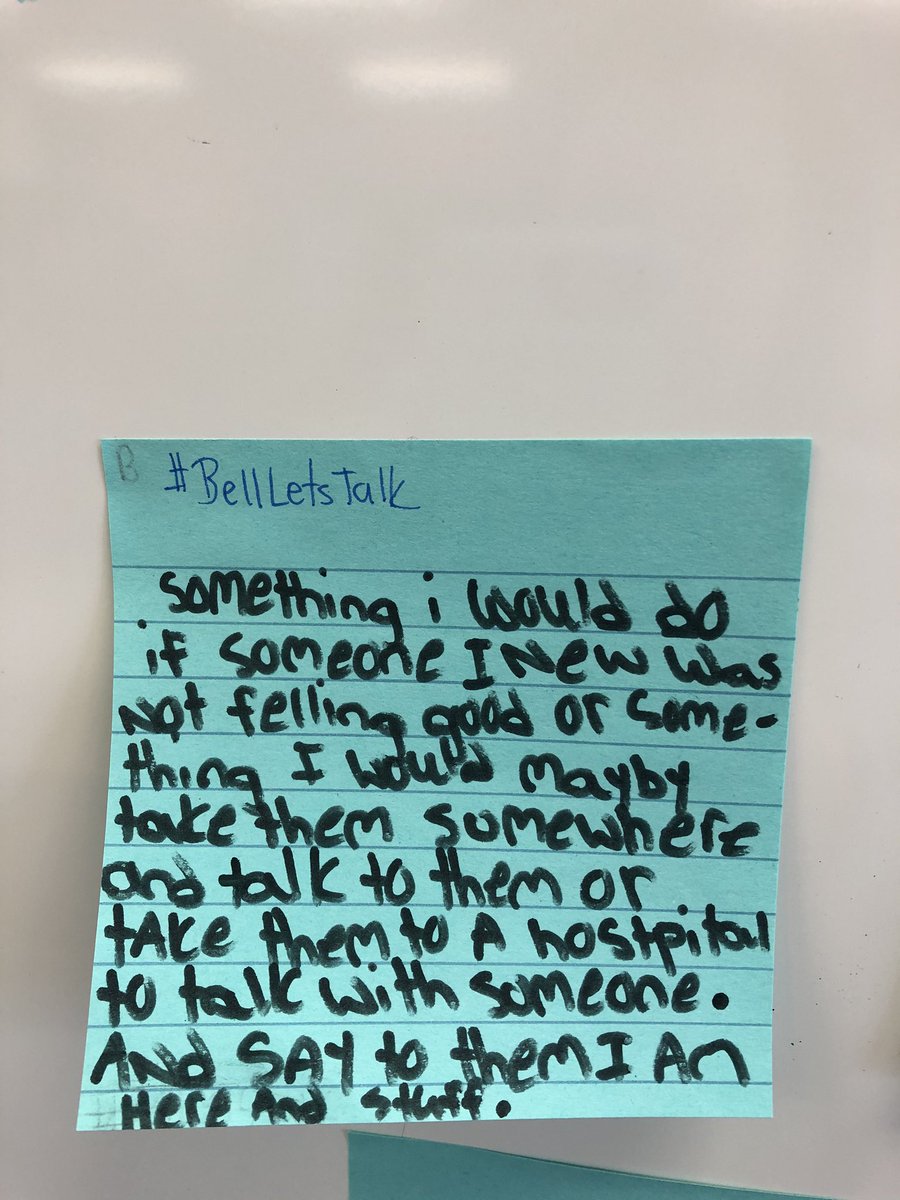 B
#BellLetsTalk
something i would do
if someone I New was
Not felling good or some-
thing I would mayby
take them somewhere
and talk to them or
tAke them to A hostpital
to talk with someone.
ANd SAY to them I Am
Here And stuff.